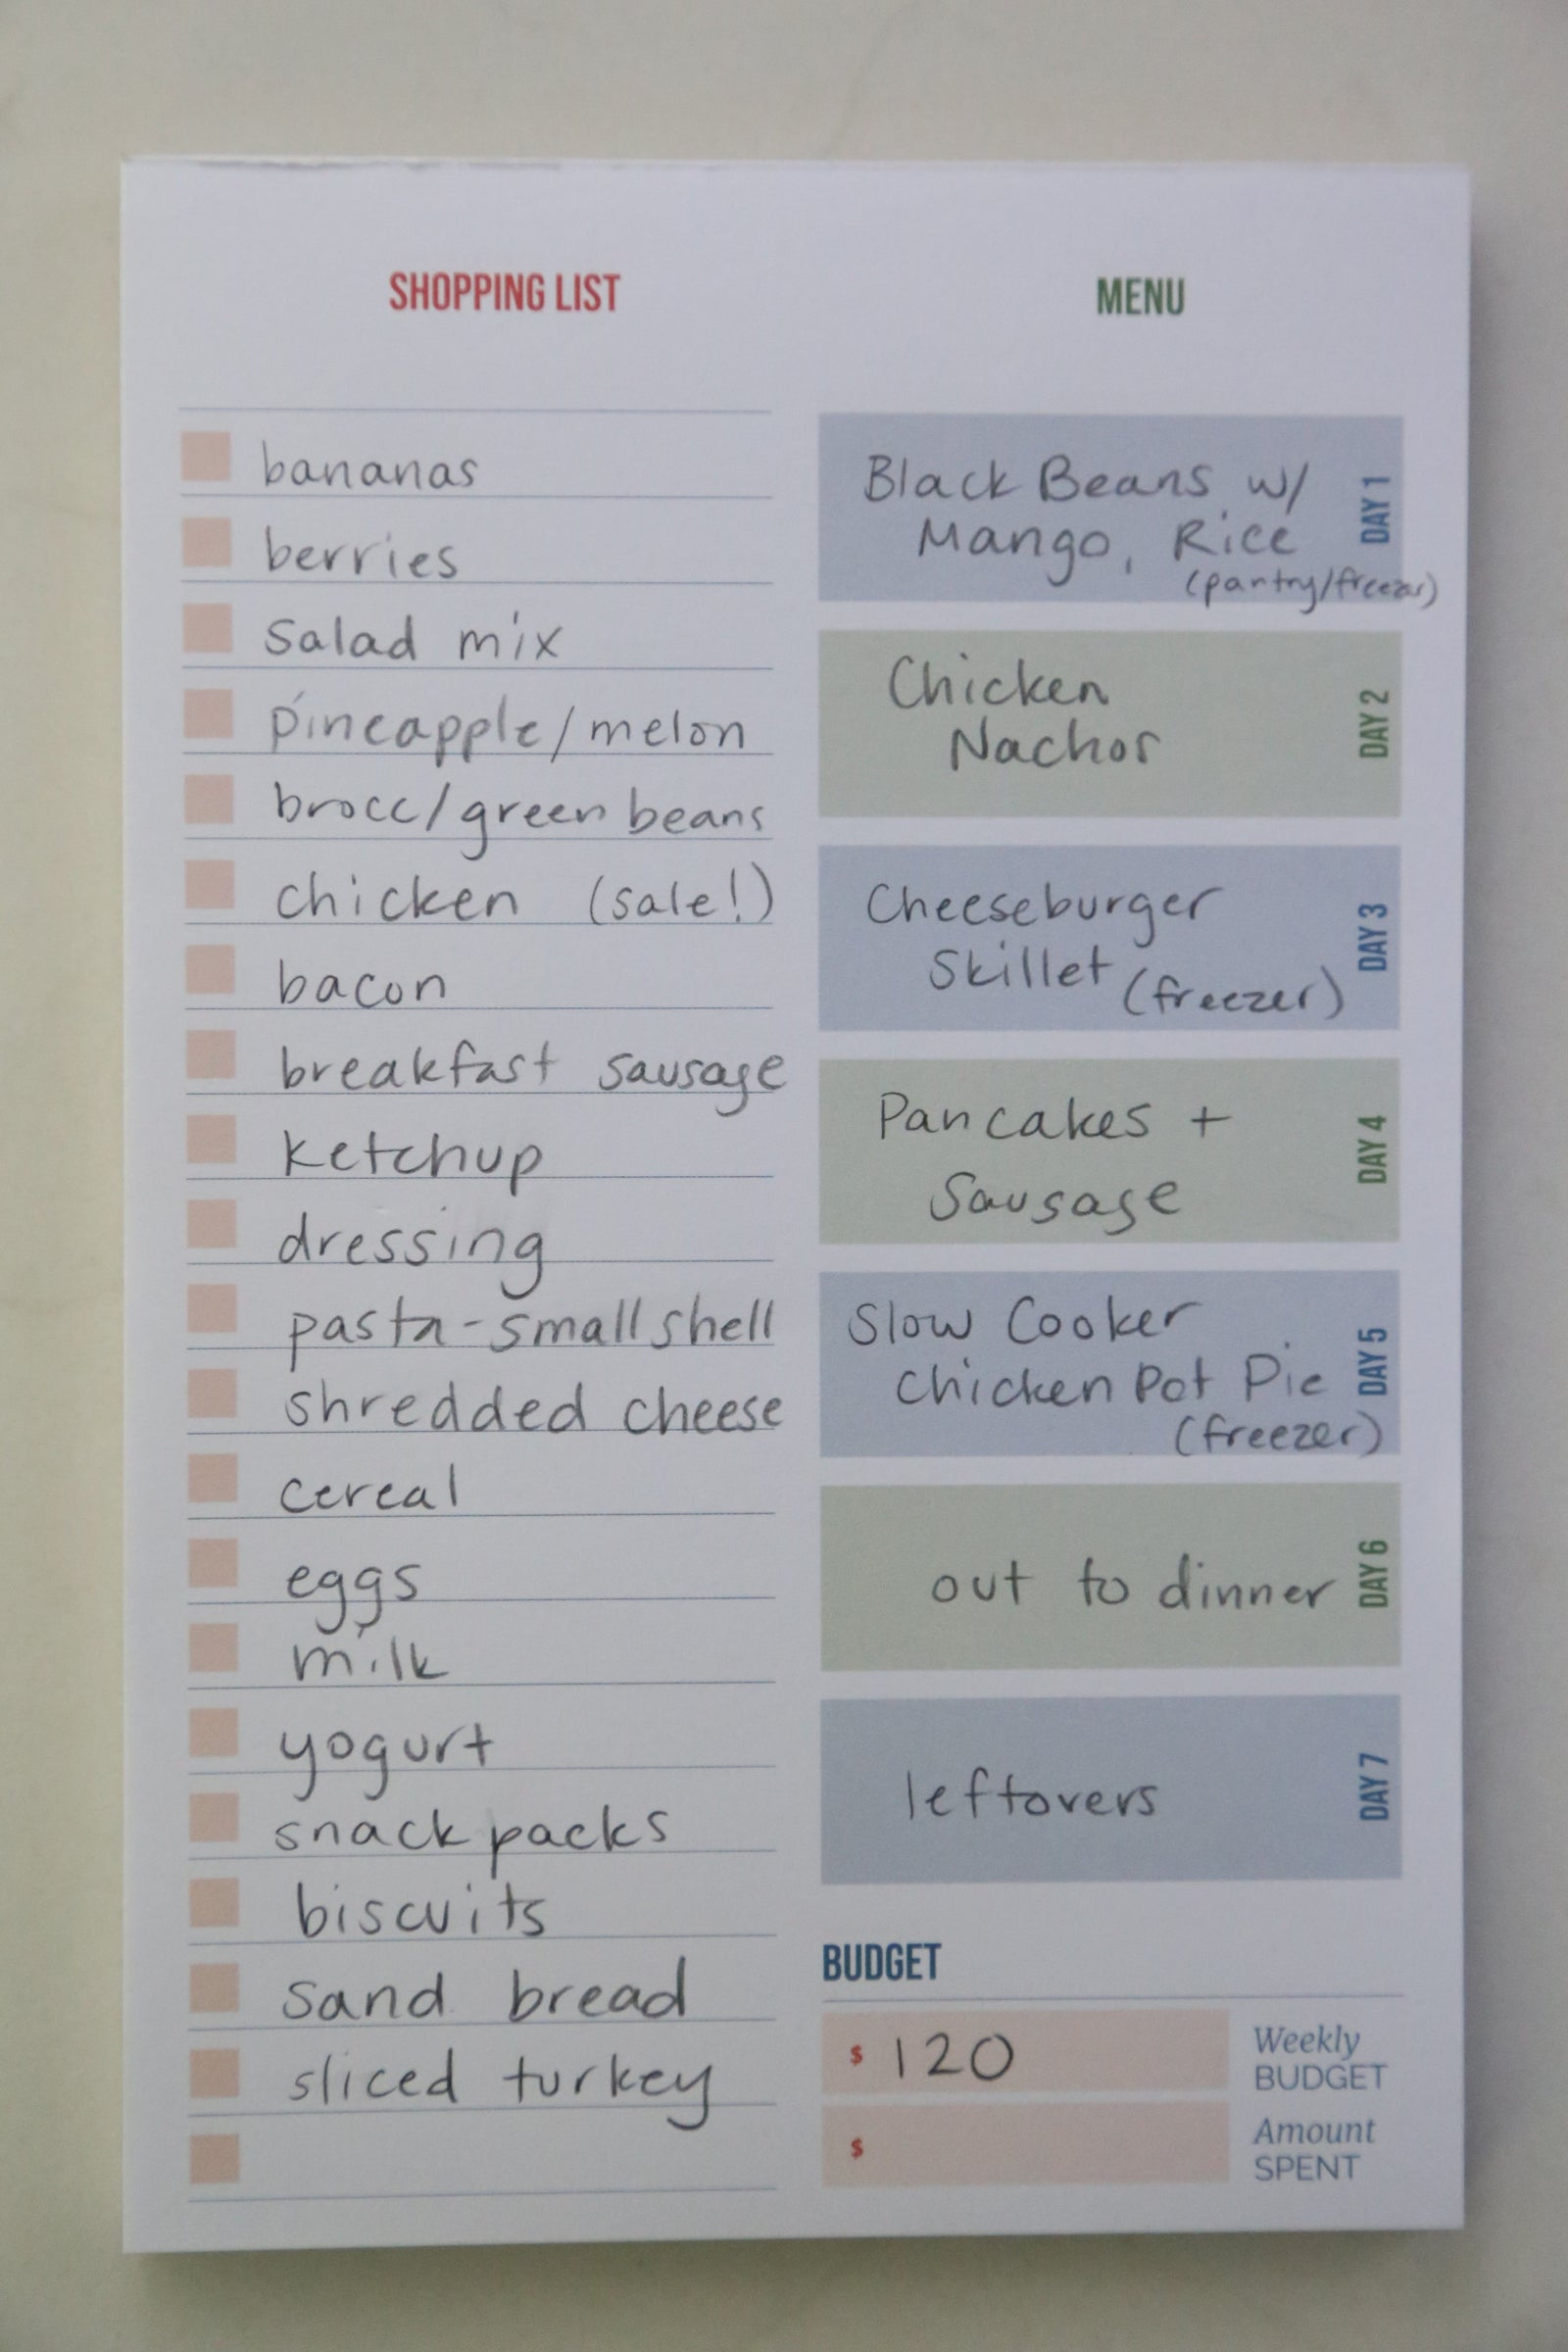 SHOPPING LIST
bananas
berries
salad mix
pineapple/melon
brocc/green beans
chicken (sale!)
bacon
breakfast sausage
ketchup
dressing
pasta-small shell
shredded cheese
cereal
eggs
milk
yogurt
snack packs
biscuits
sand bread
sliced turkey
MENU
Black Beans w/
Mango, Rice
(pantry/freezer)
DAY 1
Chicken
Nachos
DAY 2
Cheeseburger
Skillet (freezer)
DAY 3
Pancakes +
Sausage
DAY 4
Slow Cooker
Chicken Pot Pie
(freezer)
DAY 5
out to dinner
DAY 6
leftovers
DAY 7
BUDGET
$ 120
Weekly
BUDGET
$
Amount
SPENT